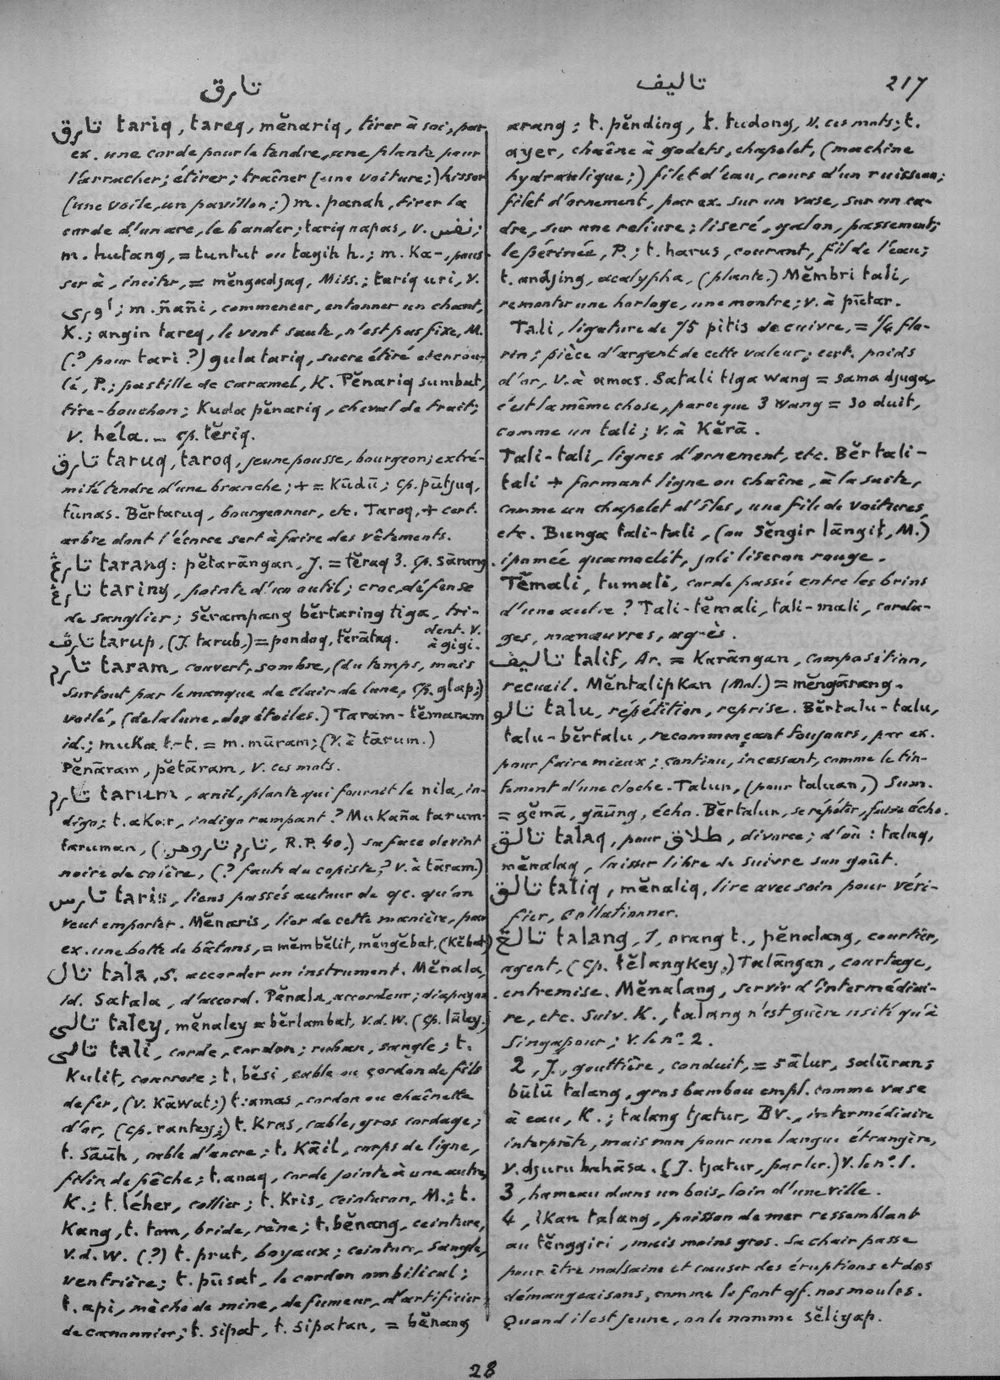 تارق
تاليف 217
تارق tariq, tareq, mĕnariq, tirer à soi, par
ex. une corde pour la tendre, une plante pour
l'arracher; étirer; traîner (une voiture;) hisser
(une voile, un pavillon;) m. panah, tirer la
corde d'un arc, le bander; tariq napas, v. نفس;
m. hutang, = tuntut ou tagih h.; m. Ka-, pous-
ser à, inciter, = mĕngadjaq, Miss.; tariq uri, v.
اوري; m. ñañi, commencer, entonner un chant,
K.; angin tareq, le vent saute, n'est pas fixe, M.
(? pour tari ?) gula tariq, sucre étiré et enrou-
lé, P.; pastille de caramel, K. Pĕnariq sumbat,
tire-bouchon; Kuda pĕnariq, cheval de trait;
v. héla. — cp. tĕriq.
تارق taruq, taroq, jeune pousse, bourgeon; extré-
mité tendre d'une branche; + = Kūdū; cp. pūtjuq,
tūnas. Bĕrtaruq, bourgeonner, etc. Taroq, + cert.
arbre dont l'écorce sert à faire des vêtements.
تارڠ tarang: pĕtarāngan, J. = tĕraq 3. cp. sārang.
تارڠ taring, pointe d'un outil; croc, défense
de sanglier; sĕrampang bĕrtaring tiga, tri-
dent. v. à gigi.
تارف tarup, (J. tarub,) = pondoq, tĕrātaq.
تارم taram, couvert, sombre, (du temps, mais
surtout par le manque de clair de lune, cp. glap;)
voilé, (de la lune, des étoiles.) Taram-tĕmaram
id.; muka t.-t. = m. mūram; (v. à tārum.)
Pĕnāram, pĕtāram, v. ces mots.
تارم tarum, anil, plante qui fournit le nila, in-
digo; t. akar, indigo rampant? Mukaña tarum-
taruman, (تارم تارومن, R.P. 40.) sa face devint
noire de colère, (? faute du copiste, ? v. à tāram.)
تارس taris, liens passés autour de qc. qu'on
veut emporter. Mĕnaris, lier de cette manière, par
ex. une botte de bâtons, = mĕmbĕlit, mĕngĕbat, (Kĕbat.)
تال tala, S. accorder un instrument. Mĕnala,
id. Satala, d'accord. Pĕnala, accordeur; diapason.
تالي taley, mĕnaley = bĕrlambat, v.d.W. (cp. lāley.)
تالي tali, corde, cordon; ruban, sangle; t.
Kulit, courroie; t. bĕsi, cable ou cordon de fils
de fer, (v. Kāwat;) t. amas, cordon ou chaînette
d'or, (cp. rantey;) t. Kras, cable, gros cordage;
t. sāūh, cable d'ancre; t. Kāil, corps de ligne,
fil in de pêche; t. anaq, corde jointe à une autre,
K.; t. léher, collier; t. Kris, ceinturon, M.; t.
Kang, t. tom, bride, rêne; t. bĕnang, ceinture,
v.d.W. (?) t. prut, boyaux; ceinture, sangle,
ventrière; t. pūsat, le cordon ombilical;
t. api, mèche de mine, de fumeur, d'artificier
de canonnier; t. sipat, t. sipatan, = bĕnang
arang; t. pĕnding, t. tudong, v. ces mots; t.
ayer, chaîne à godets, chapelet, (machine
hydraulique;) filet d'eau, cours d'un ruisseau;
filet d'ornement, par ex. sur un vase, sur un ca-
dre, sur une reliure; liseré, galon, passement;
le périnée, P.; t. harus, courant, fil de l'eau;
t. andjing, acalypha, (plante.) Mĕmbri tali,
remonter une horloge, une montre; v. à pūtar.
Tali, ligature de 75 pitis de cuivre, = ¼ flo-
rin; pièce d'argent de cette valeur; cert. poids
d'or, v. à amas. Satali tiga wang = sama djuga,
c'est la même chose, parce que 3 wang = 30 duit,
comme un tali; v. à Kĕrā.
Tali-tali, lignes d'ornement, etc. Bĕrtali-
tali + formant ligne ou chaîne, à la suite,
comme un chapelet d'îles, une file de voitures,
etc. Bunga tali-tali, (ou Sĕngir lāngit, M.)
ipomée quamoclit, joli liseron rouge.
Tĕmali, tumali, corde passée entre les brins
d'une autre? Tali-tĕmali, tali-mali, corda-
ges, manœuvres, agrès.
تاليف talif, Ar. = Karāngan, composition,
recueil. Mĕntalipkan (Mal.) = mĕngārang.
تالو talu, répétition, reprise. Bĕrtalu-talu,
talu-bĕrtalu, recommençant toujours, par ex.
pour faire mieux; continu, incessant, comme le tin-
tement d'une cloche. Talun, (pour taluan,) Sum.
= gĕmā, gāūng, écho. Bĕrtalun, se répéter, faire écho.
تالق talaq, pour طلاق, divorce; d'où: talaq,
mĕnalaq, laisser libre de suivre son goût.
تالق taliq, mĕnaliq, lire avec soin pour véri-
fier, collationner.
تالڠ talang, 1, orang t., pĕnalang, courtier,
agent, (cp. tĕlangkey.) Talāngan, courtage,
entremise. Mĕnalang, servir d'intermédiai-
re, etc. Suiv. K., talang n'est guère usité qu'à
Singapour; v. le n°. 2.
2, J., gouttière, conduit, = sālur, salūran;
būlū talang, gros bambou empl. comme vase
à eau, K.; talang tjatur, Bv., intermédiaire
interprète, mais non pour une langue étrangère,
v. djuru bahāsa. (J. tjatur, parler.) v. le n°. 1.
3, hameau dans un bois, loin d'une ville.
4, ikan talang, poisson de mer ressemblant
au tĕnggiri, mais moins gros. Sa chair passe
pour être malsaine et causer des éruptions et des
démangeaisons, comme le font qf. nos moules.
Quand il est jeune, on le nomme sĕliyap.
28